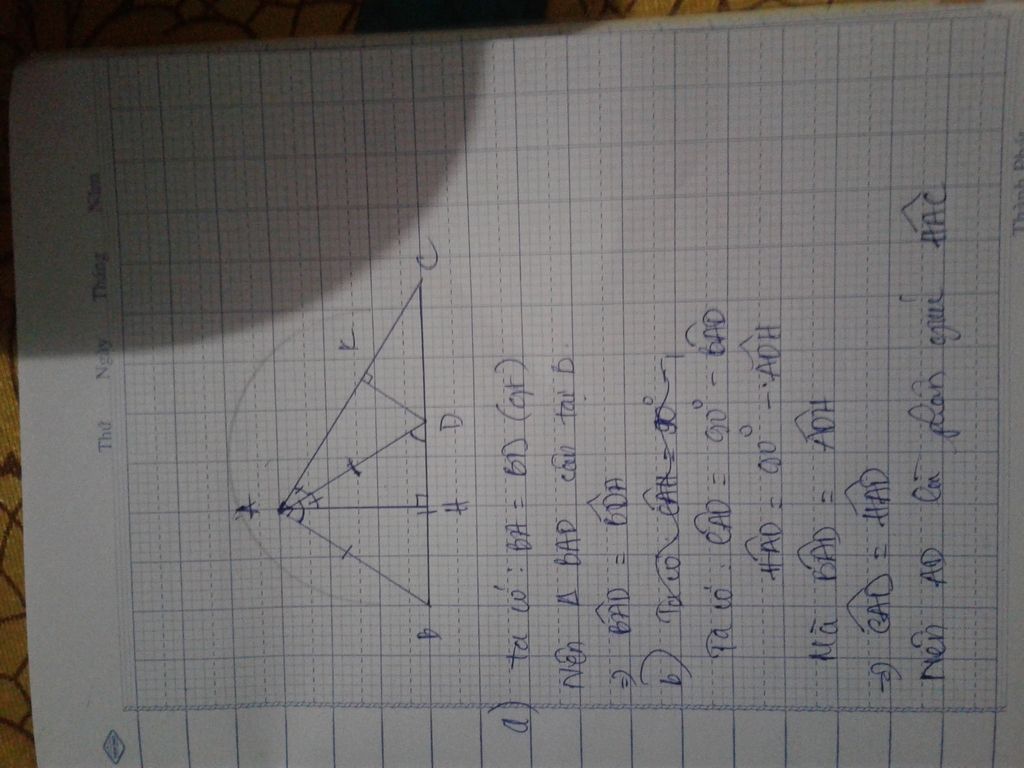 Thứ Ngày Tháng Năm
A
K
B H D C
a) Ta có : BA = BD (gt)
Nên Δ BAD cân tại B.
=> BAD = BDA
b) Ta có CAH = 90°
Ta có : CAD = 90° - BAD
HAD = 90° - ADH
Mà BAD = ADH
=> CAD = HAD
Nên AD là phân giác HAC